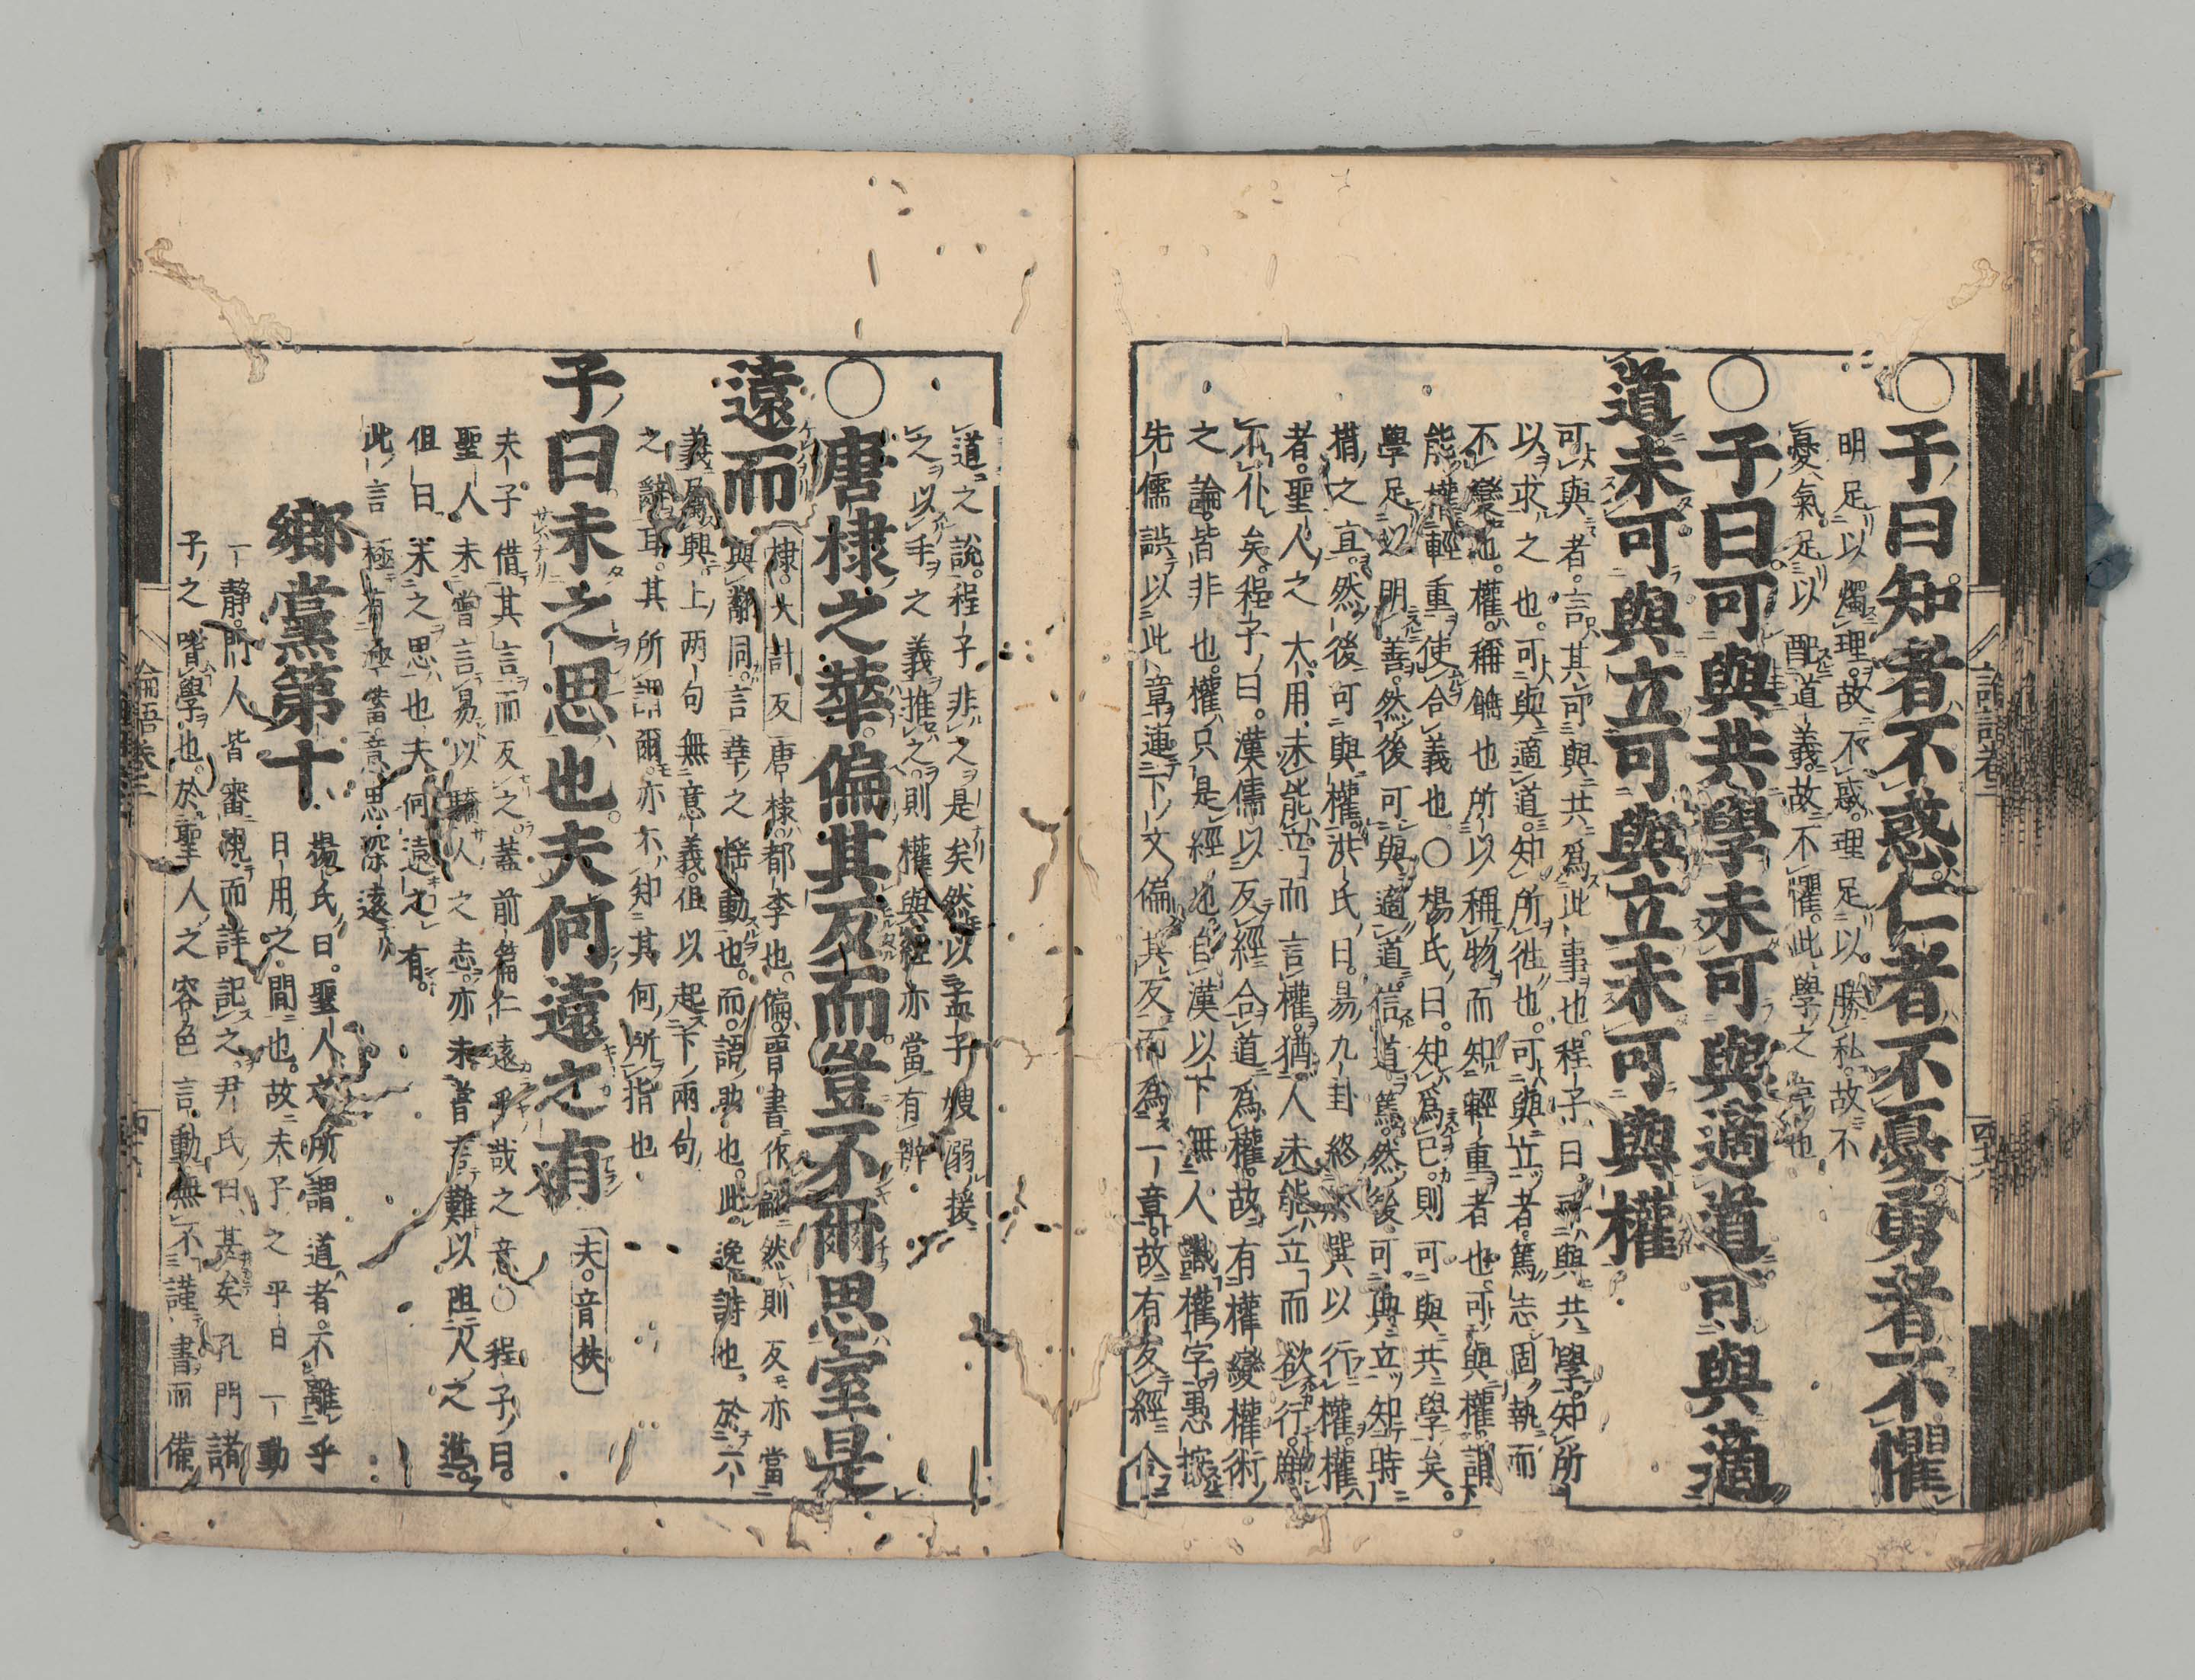 ○子曰知者不惑仁者不憂勇者不懼
明足以燭理。故不惑。理足以勝私。故不
憂。氣足以配道義。故不懼。此學之序也
○子曰可與共學未可與適道可與適
道未可與立可與立未可與權
可與者。言其可與共爲此事也。程子曰。可與共學。知所
以求之也。可與適道。知所徃也。可與立者。篤志固執而
不變也。權。稱錘也所以稱物而知輕重者也。可與權。謂
能權輕重使合義也○楊氏曰。知爲己。則可與共學矣。
學足以明善。然後可與適道。信道篤。然後可與立。知時
措之宜。然後可與權。洪氏曰。易九卦終於巽以行權。權
者。聖人之大用。未能立而言權。猶人未能立而欲行。鮮
不仆矣。程子曰。漢儒以反經合道爲權。故有權變權術
之論。皆非也。權只是經也。自漢以下無人識權字。愚按
先儒誤以此章連下文偏其反而爲一章。故有反經合
道之說。程子非之是矣。然以孟子嫂溺援
之以手之義推之。則權與經亦當有辨
○唐棣之華偏其反而豈不爾思室是
遠而
棣。大計反
唐棣。郁李也。偏。晋書作翩然則反亦當
與翻同。言華之搖動也。而。語助也。此。逸詩也。於六
義屬興。上両句無意義。但以起下兩句
之辭耳。其所謂爾。亦不知其何所指也
子曰未之思也夫何遠之有
夫。音扶
夫子借其言而反之。蓋前篇仁遠乎哉之意○程子曰。
聖人未嘗言易以驕人之志。亦未嘗言難以阻人之進。
但曰未之思也夫何遠之有。
此言極有涵蓄。意思深遠
鄉黨第十
楊氏曰。聖人之所謂道者。不離乎
日用之間也。故夫子之平日一動
一靜。門人皆審視而詳記之。尹氏曰。甚矣孔門諸
子之嗜學也。於聖人之容色言動。無不謹書而備
論語卷三